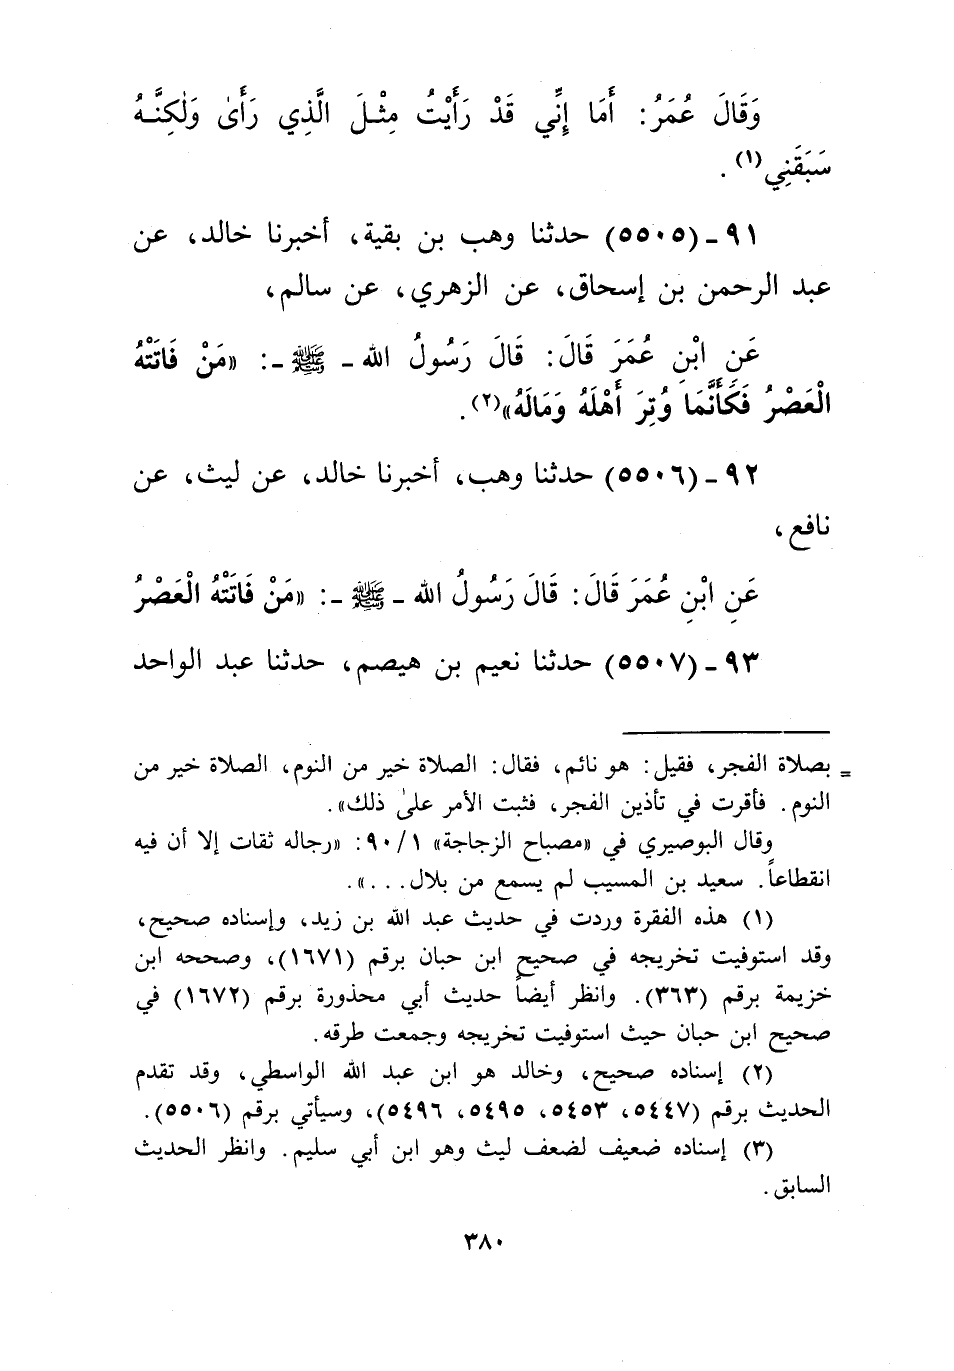 وَقَالَ عُمَرُ: أَمَا إِنِّي قَدْ رَأَيْتُ مِثْلَ الَّذِي رَأَىٰ وَلٰكِنَّهُ
سَبَقَنِي(١).
٩١ ـ (٥٥٠٥) حدثنا وهب بن بقية، أخبرنا خالد، عن
عبد الرحمن بن إسحاق، عن الزهري، عن سالم،
عَنِ ابْنِ عُمَرَ قَالَ: قَالَ رَسُولُ الله ـ ﷺ ـ: «مَنْ فَاتَتْهُ
الْعَصْرُ فَكَأَنَّمَا وُتِرَ أَهْلَهُ وَمَالَهُ»(٢).
٩٢ ـ (٥٥٠٦) حدثنا وهب، أخبرنا خالد، عن ليث، عن
نافع،
عَنِ ابْنِ عُمَرَ قَالَ: قَالَ رَسُولُ الله ـ ﷺ ـ: «مَنْ فَاتَتْهُ الْعَصْرُ
٩٣ ـ (٥٥٠٧) حدثنا نعيم بن هيصم، حدثنا عبد الواحد
= بصلاة الفجر، فقيل: هو نائم، فقال: الصلاة خير من النوم، الصلاة خير من
النوم. فأقرت في تأذين الفجر، فثبت الأمر علىٰ ذلك».
وقال البوصيري في «مصباح الزجاجة» ٩٠/١: «رجاله ثقات إلا أن فيه
انقطاعاً. سعيد بن المسيب لم يسمع من بلال...».
(١) هذه الفقرة وردت في حديث عبد الله بن زيد، وإسناده صحيح،
وقد استوفيت تخريجه في صحيح ابن حبان برقم (١٦٧١)، وصححه ابن
خزيمة برقم (٣٦٣). وانظر أيضاً حديث أبي محذورة برقم (١٦٧٢) في
صحيح ابن حبان حيث استوفيت تخريجه وجمعت طرقه.
(٢) إسناده صحيح، وخالد هو ابن عبد الله الواسطي، وقد تقدم
الحديث برقم (٥٤٤٧، ٥٤٥٣، ٥٤٩٥، ٥٤٩٦)، وسيأتي برقم (٥٥٠٦).
(٣) إسناده ضعيف لضعف ليث وهو ابن أبي سليم. وانظر الحديث
السابق.
٣٨٠